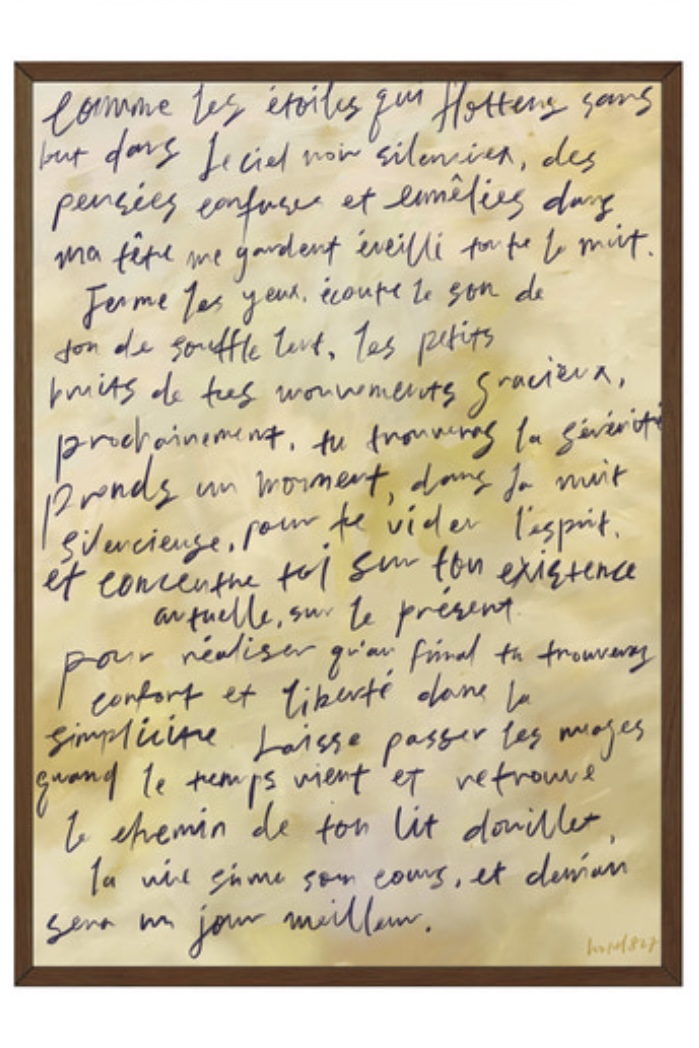 Comme les étoiles qui flottens sans
but dans le ciel noir silencieux, des
pensées confuses et emmêlées dans
ma tête me gardent éveillé toute la nuit.
Ferme les yeux, écoute le son de
ton de souffle lent, les petits
bruits de tes mouvements gracieux,
prochainement, tu trouveras la sérénité
Prends un moment, dans la nuit
silencieuse, pour te vider l'esprit.
et concentre toi sur ton existence
actuelle, sur le présent.
pour réaliser qu'au final tu trouveras
confort et liberté dans la
simplicité Laisse passer les nuages
quand le temps vient et retrouve
le chemin de ton lit douillet,
la vie suive son cours, et demain
sera un jour meilleur.